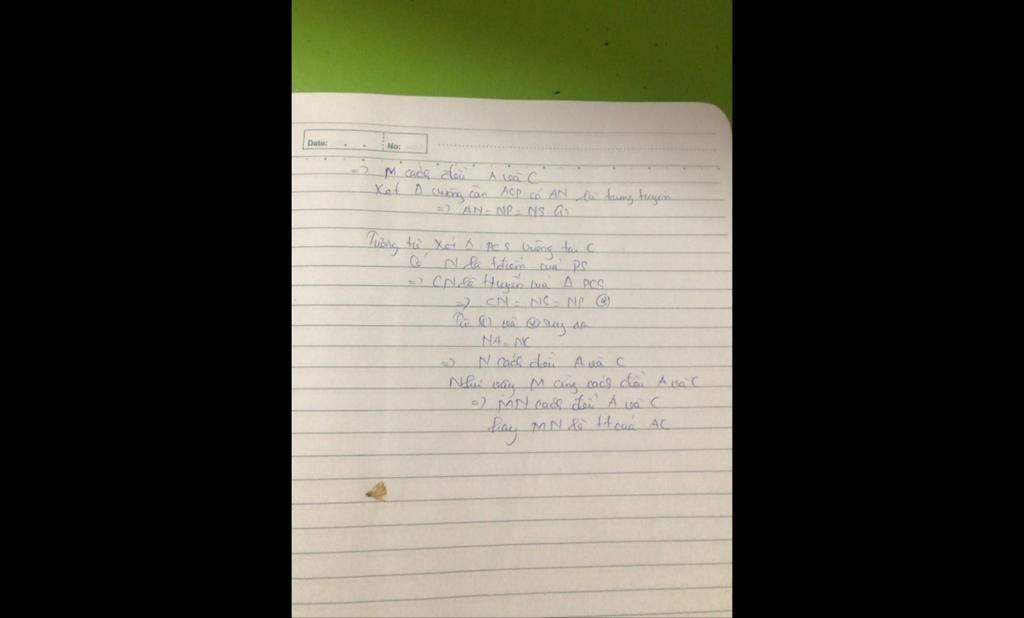 Date: . . No:
=> M cách đều A và C
Xét Δ vuông cân ACP có AN là trung tuyến
=> AN = NP = NS (1)
Tương tự xét Δ PCS vuông tại C
Có N là tđiểm của PS
=> CN là ttuyến của Δ PCS
=> CN = NS = NP (2)
Từ (1) và (2) suy ra
NA = NC
=> N cách đều A và C
Như vậy M cũng cách đều A và C
=> MN cách đều A và C
hay MN là tt của AC